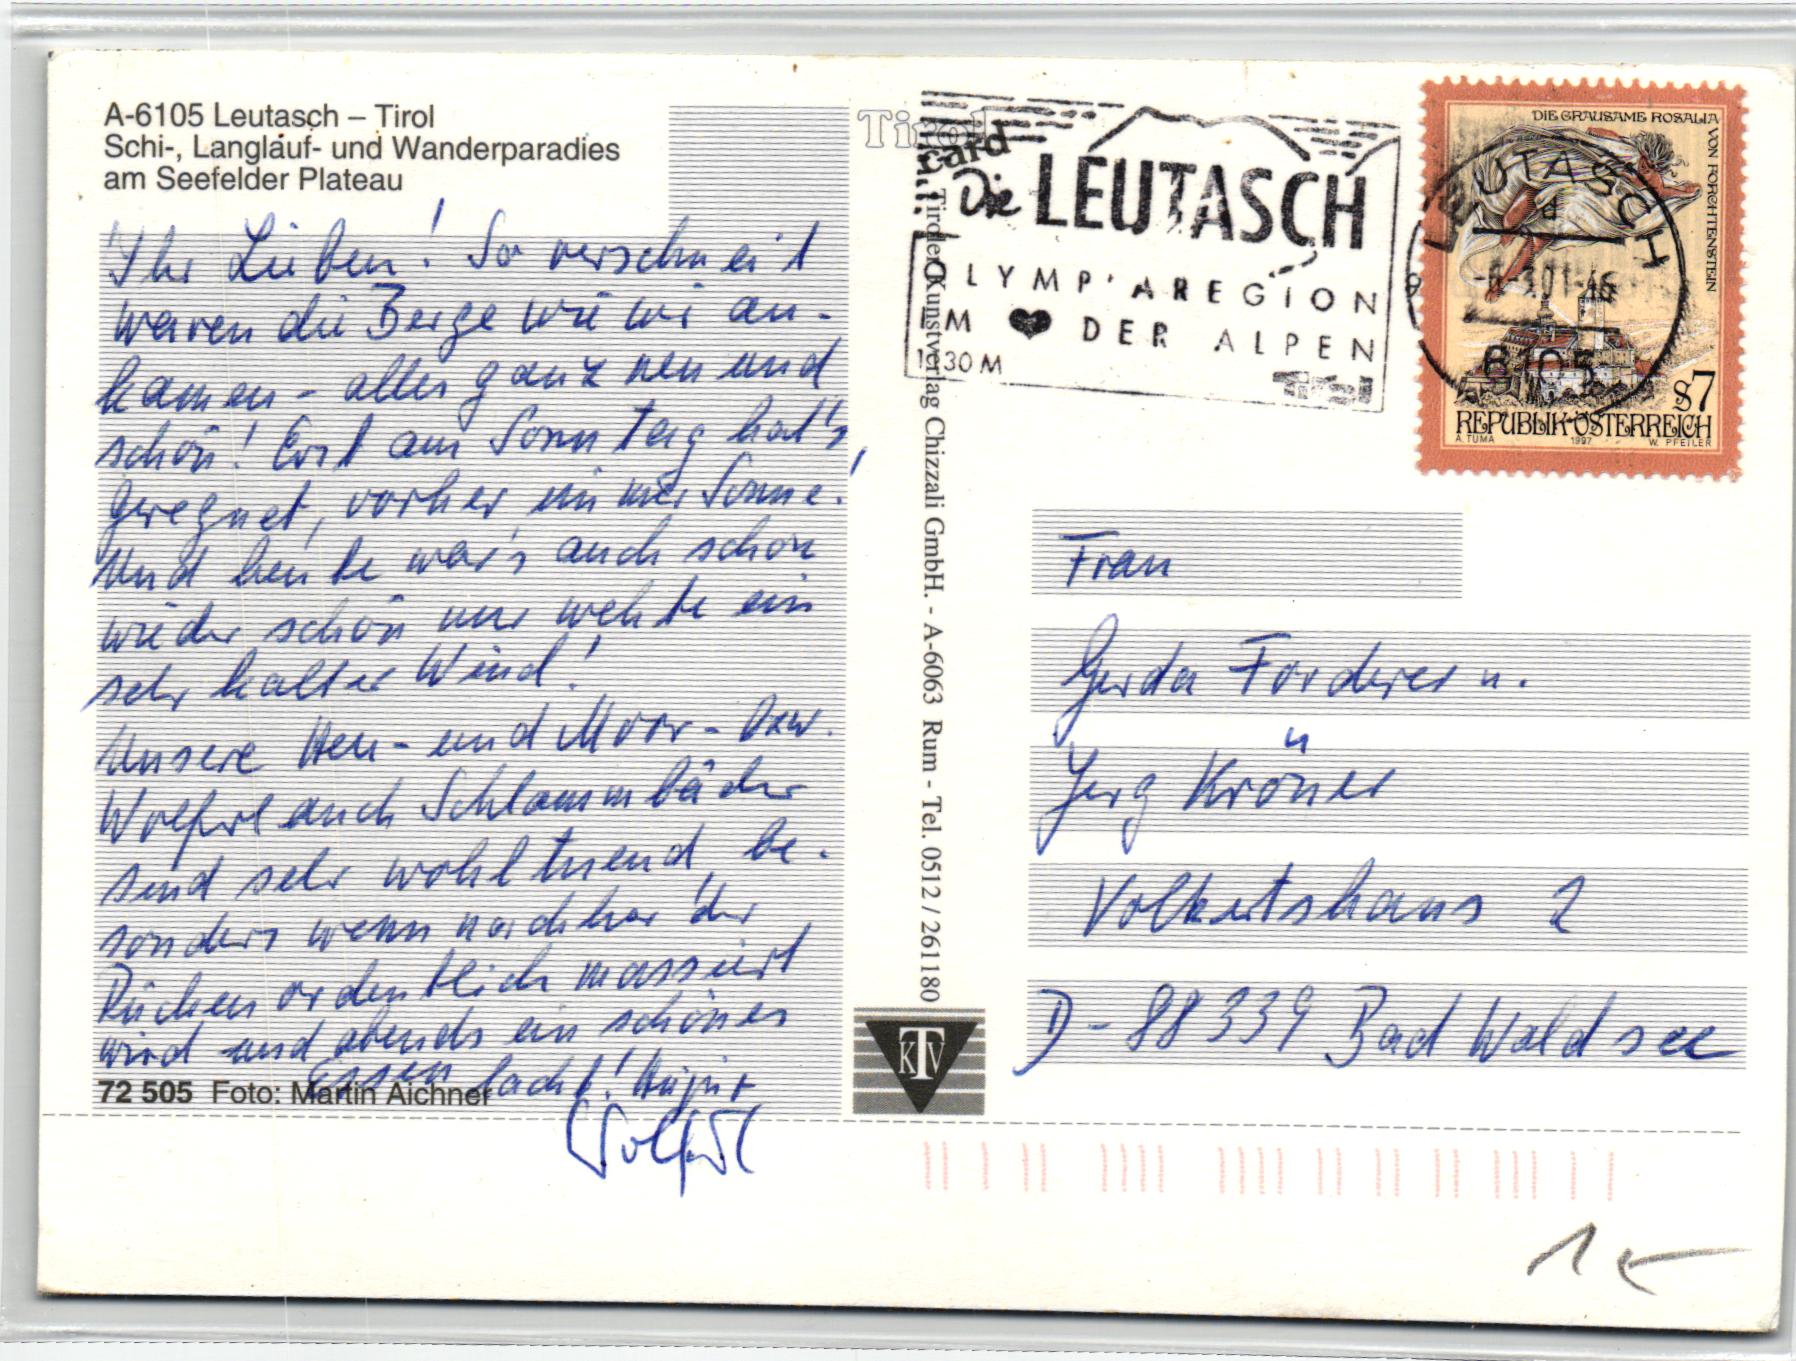 A-6105 Leutasch – Tirol
Schi-, Langlauf- und Wanderparadies
am Seefelder Plateau
Ihr Lieben! So verschneit
waren die Berge wie wir an-
kamen - alles ganz neu und
schön! Erst am Sonntag hat's
geregnet, vorher immer Sonne!
Und heute war's auch schon
wieder schön nur wehte ein
sehr kalter Wind!
Unsere Heu- und Moor- bzw.
Wolferl auch Schlammbäder
sind sehr wohltuend, be-
sonders wenn nachher der
Rücken ordentlich massiert
wird und abends ein schönes
Essen lacht!
Wolferl
72 505 Foto: Martin Aichner
Tirol
card
Tiroler Kunstverlag Chizzali GmbH. - A-6063 Rum - Tel. 0512 / 261180
KTV
Die LEUTASCH
OLYMPIAREGION
IM DER ALPEN
Tirol
LEUTASCH
DIE GRAUSAME ROSALIA VON FORCHTENSTEIN
S7
REPUBLIK ÖSTERREICH
A. TUMA 1997 W. PFEILER
Frau
Gerda Forderer u.
Jerg Kröner
Volkertshaus 2
D-88339 Bad Waldsee
1 €